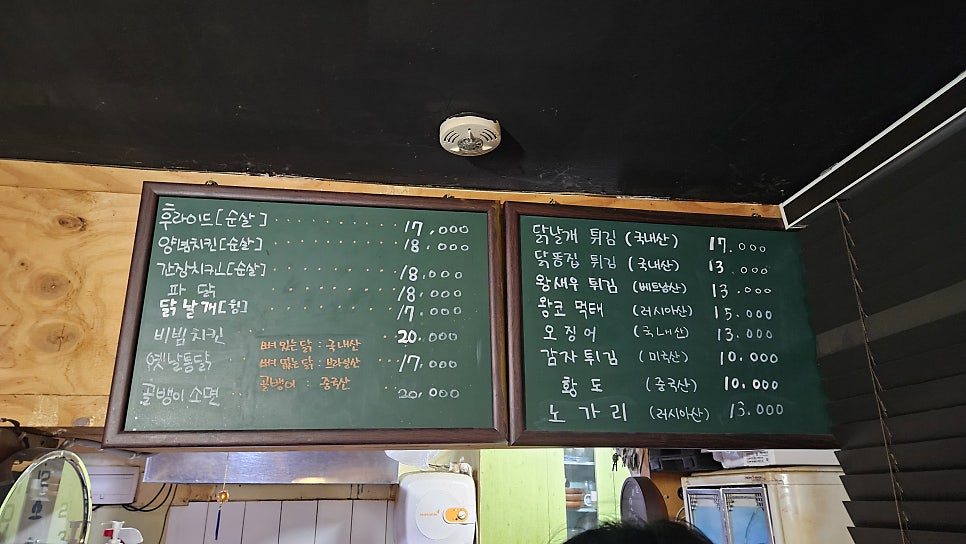 후라이드[순살] 17,000
양념치킨[순살] 18,000
간장치킨[순살] 18,000
파닭 18,000
닭날개[윙] 17,000
비빔치킨 20,000
옛날통닭 17,000
골뱅이소면 20,000
뼈 있는 닭 : 국내산
뼈 없는 닭 : 브라질산
골뱅이 : 중국산
닭날개 튀김 (국내산) 17.000
닭똥집 튀김 (국내산) 13.000
왕새우 튀김 (베트남산) 13.000
왕코 먹태 (러시아산) 15.000
오징어 (국내산) 13.000
감자튀김 (미국산) 10.000
황도 (중국산) 10.000
노가리 (러시아산) 13.000